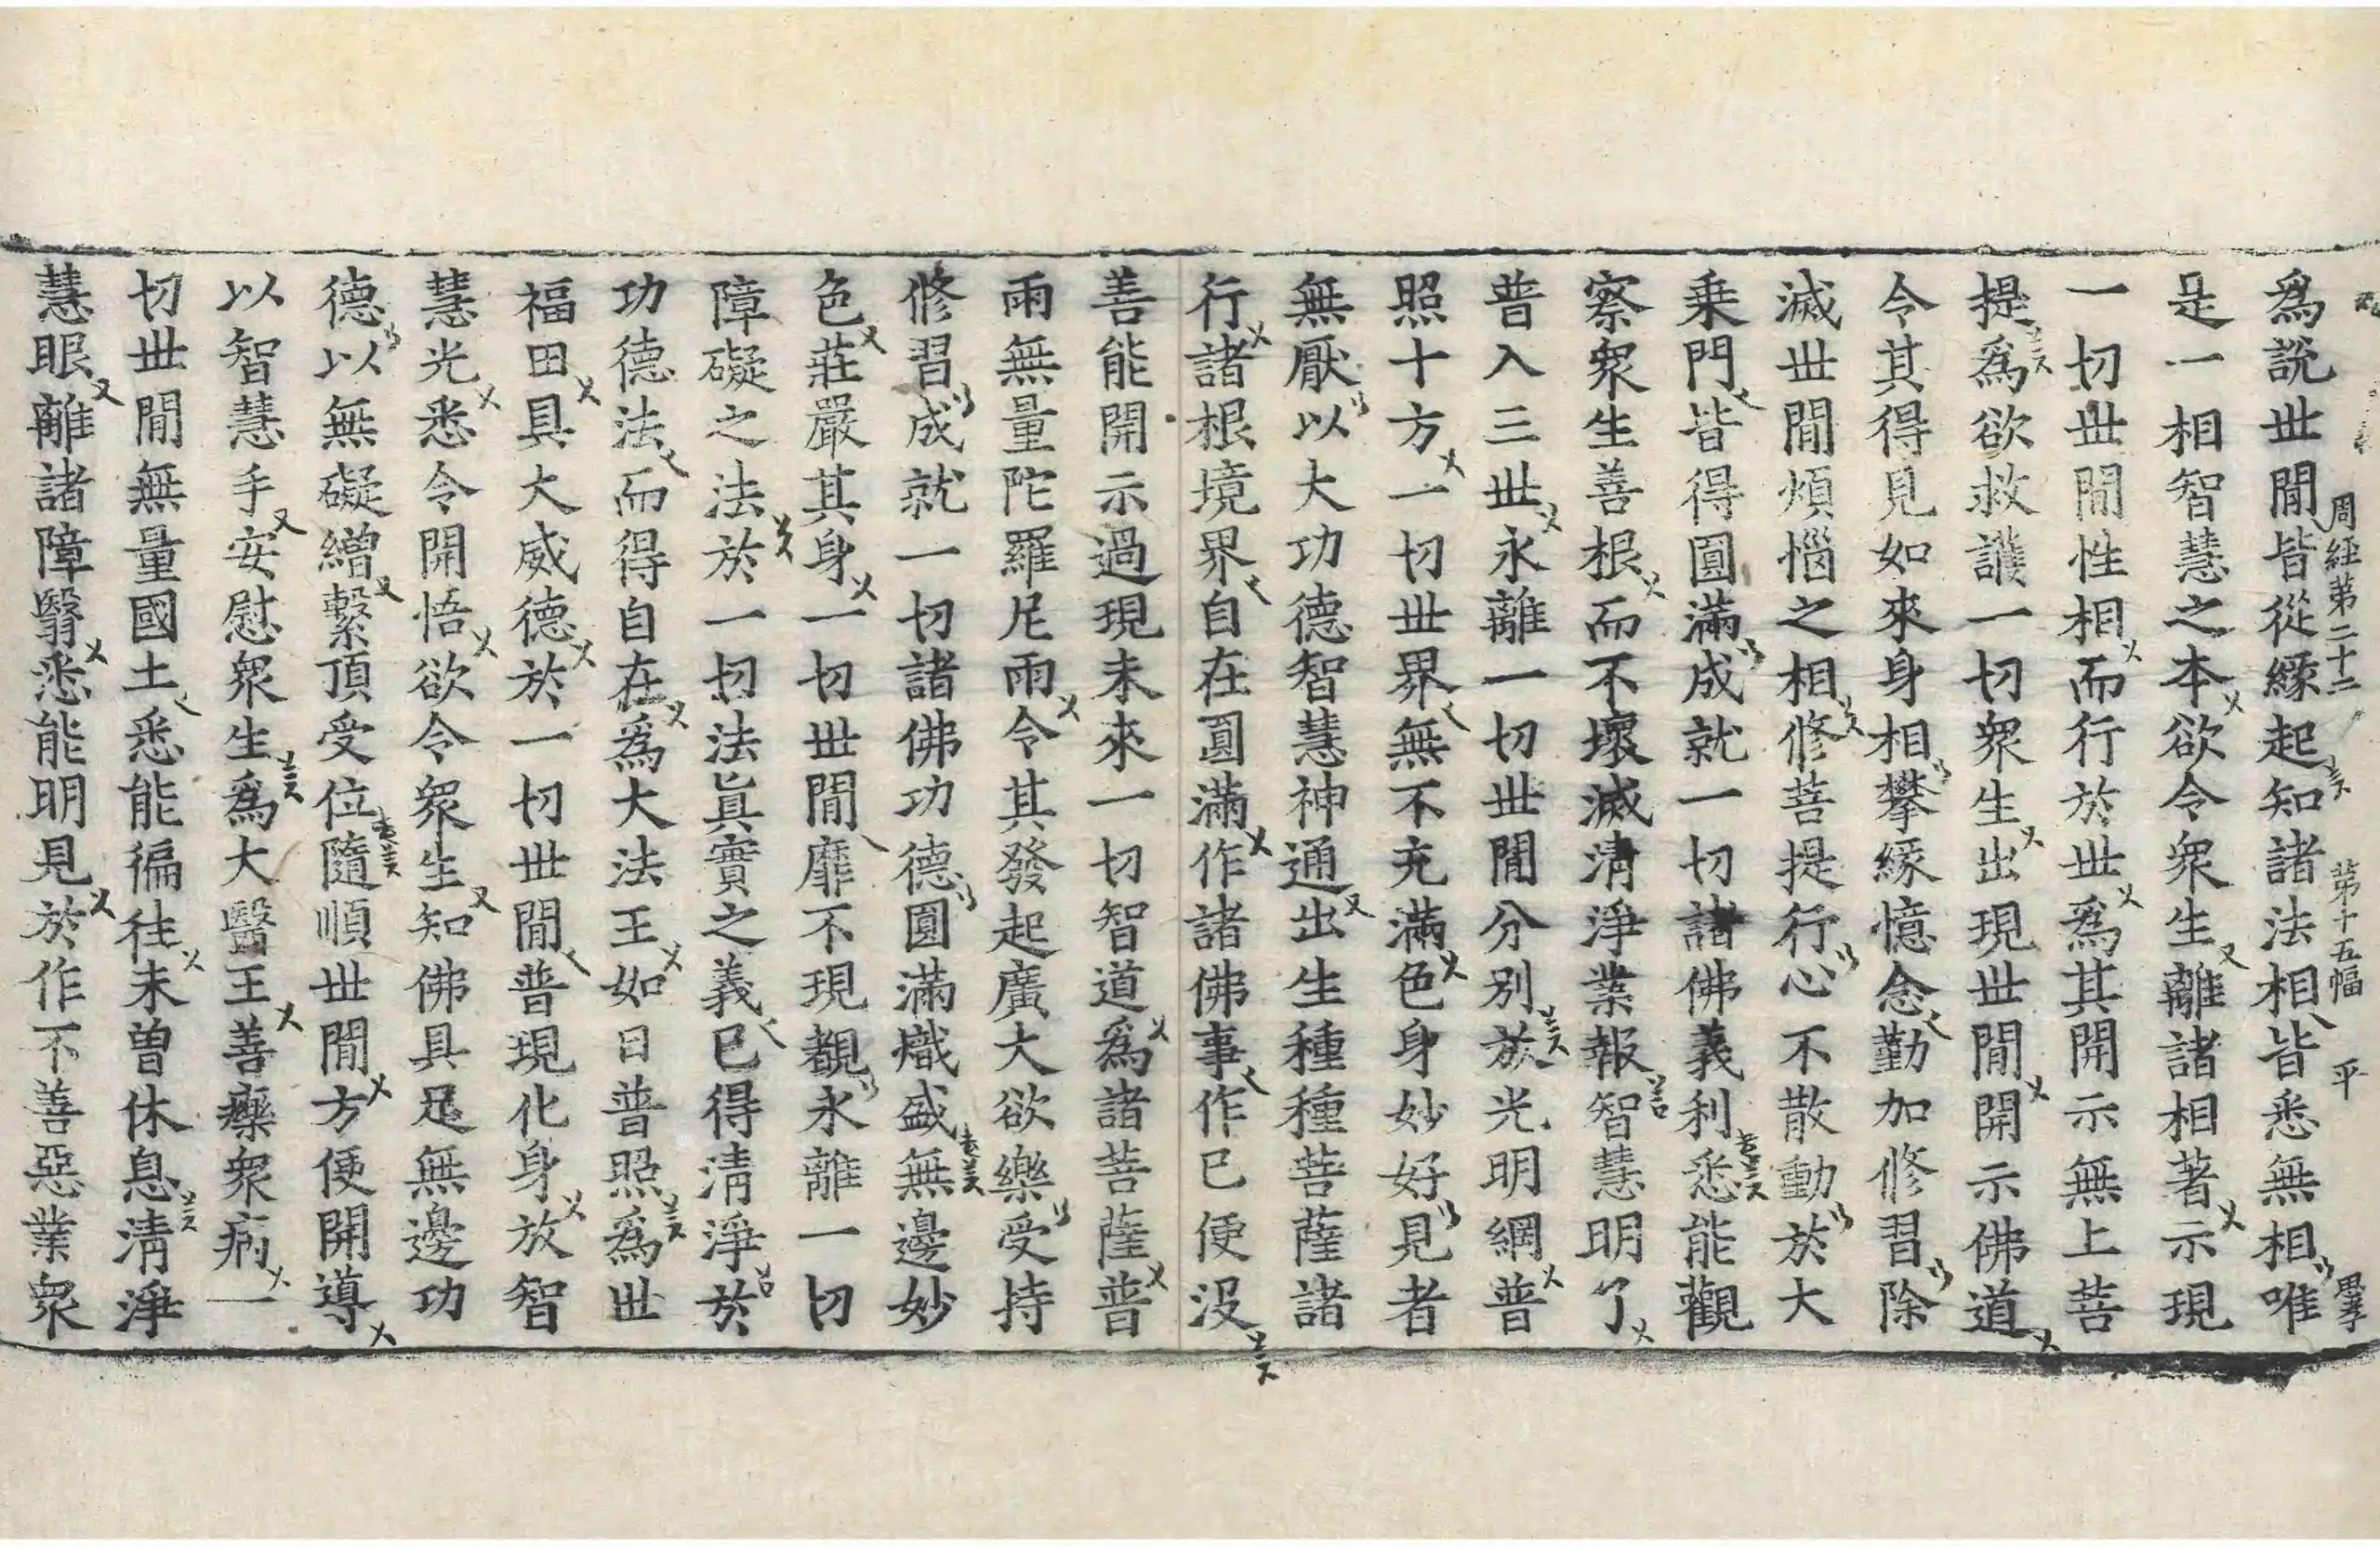 周經第二十二 第十五幅 平
爲説丗閒皆從縁起知諸法相皆悉無相唯
是一相智慧之本欲令衆生離諸相著示現
一切丗閒性相而行於丗爲其開示無上菩
提爲欲救護一切衆生出現丗閒開示佛道
令其得見如來身相攀縁憶念勤加修習除
滅丗閒煩惱之相修菩提行心不散動於大
乗門皆得圓滿成就一切諸佛義利悉能觀
察衆生善根而不壞滅清淨業報智慧明了
普入三丗永離一切丗閒分别放光明網普
照十方一切丗界無不充滿色身妙好見者
無厭以大功德智慧神通出生種種菩薩諸
行諸根境界自在圓滿作諸佛事作已便没
善能開示過現未來一切智道爲諸菩薩普
雨無量陀羅尼雨令其發起廣大欲樂受持
修習成就一切諸佛功德圓滿熾盛無邊妙
色莊嚴其身一切丗閒靡不現覩永離一切
障礙之法於一切法眞實之義已得清淨於
功德法而得自在爲大法王如日普照爲丗
福田具大威德於一切丗閒普現化身放智
慧光悉令開悟欲令衆生知佛具足無邊功
德以無礙繒繫頂受位隨順丗閒方便開導
以智慧手安慰衆生爲大醫王善療衆病一
切丗閒無量國土悉能徧往未曽休息清淨
慧眼離諸障翳悉能明見於作不善惡業衆